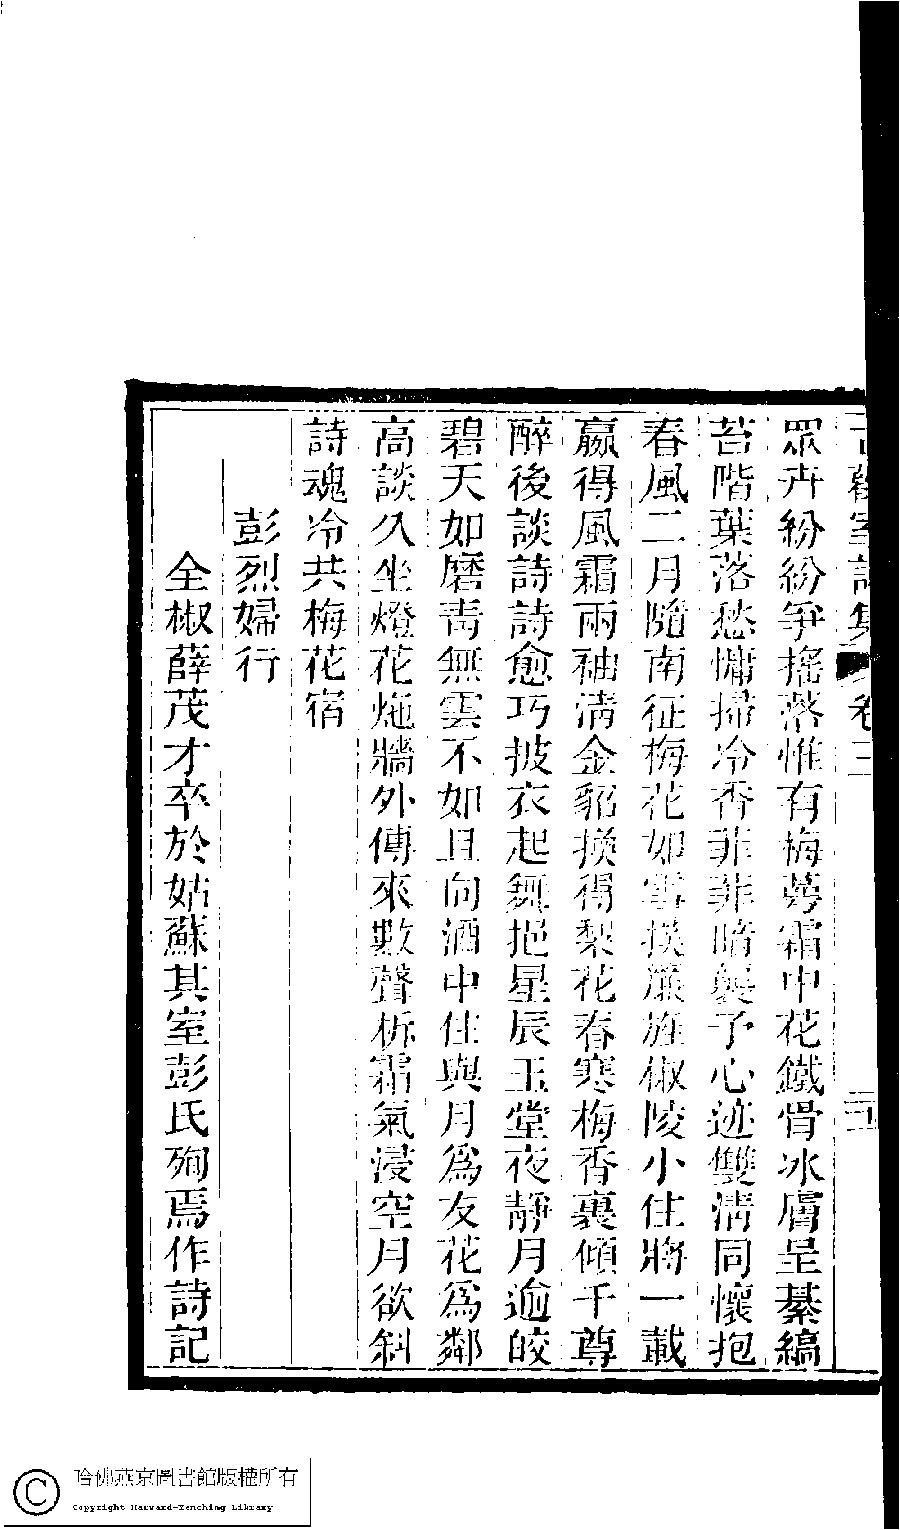 眾卉紛紛爭搖落惟有梅蕚霜中花鐵骨冰膚呈綦縞
苔階葉落愁慵掃冷香菲菲暗襲予心迹雙淸同懷抱
春風二月隨南征梅花如雪撲簾旌椒陵小住將一載
嬴得風霜兩袖淸金貂換得梨花春寒梅香裏傾千尊
醉後談詩詩愈巧披衣起舞挹星辰玉堂夜靜月逾皎
碧天如磨靑無雲不如且向酒中住與月爲友花爲鄰
高談久坐燈花灺牆外傳來數聲柝霜氣浸空月欲斜
詩魂冷共梅花宿
彭烈婦行
全椒薛茂才卒於姑蘇其室彭氏殉焉作詩記
室詩集
卷三
哈佛燕京圖書館版權所有
Copyright Harvard-Yenching Library